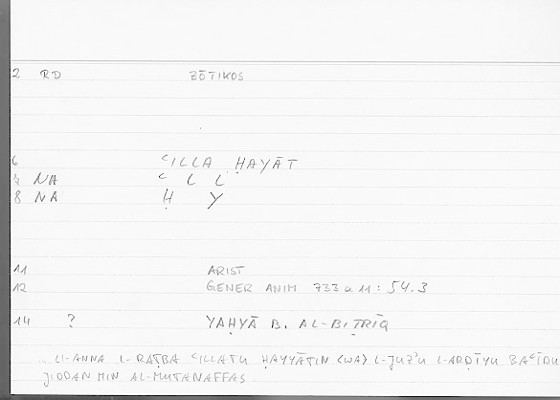 2 RD ZŌTIKOS
6 ʿILLA ḤAYĀT
7 NA ʿ L L
8 NA Ḥ Y
11 ARIST
12 GENER ANIM 733 a 11: 54.3
14 ? YAḤYĀ B. AL-BIṬRĪQ
... LI-ANNA L-RAṬBA ʿILLATU ḤAYYĀTIN (WA) L-ǦUZʾU L-ARḌĪYU BAʿĪDU
ǦIDDAN MIN AL-MUTANAFFAS